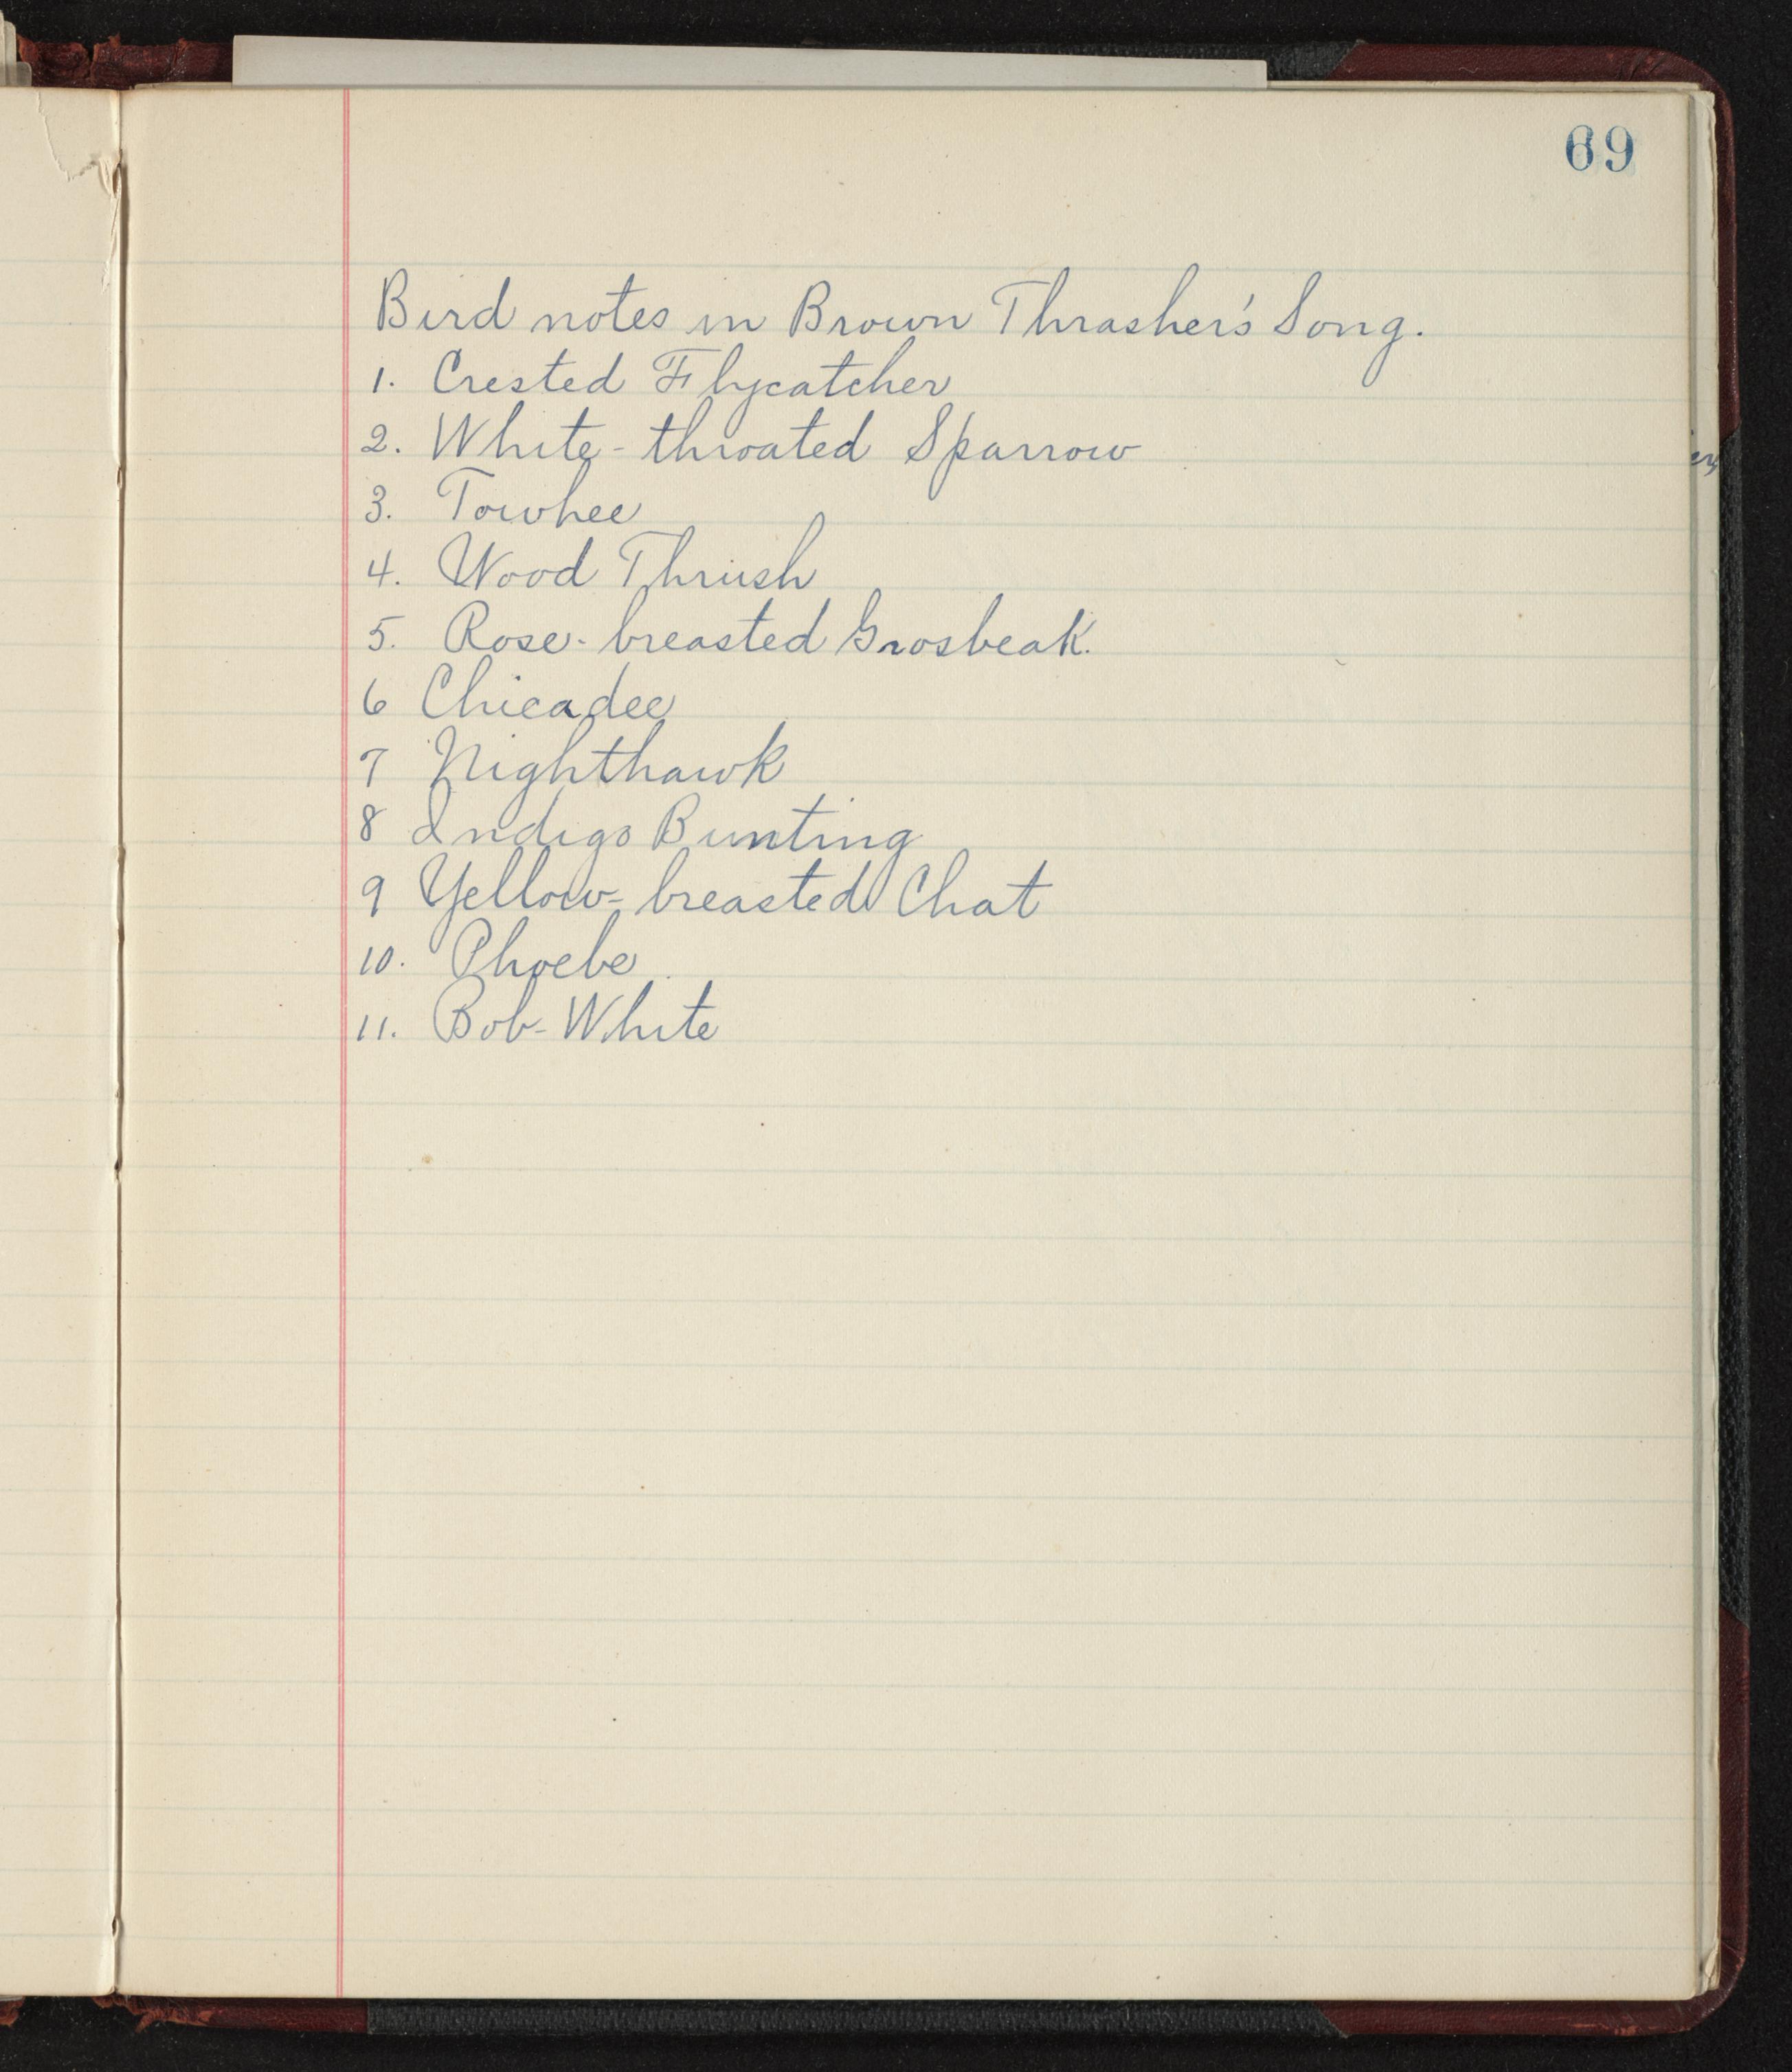 69
Bird notes in Brown Thrasher's Song.
1. Crested Flycatcher
2. White-throated Sparrow
3. Towhee
4. Wood Thrush
5. Rose-breasted Grosbeak.
6 Chicadee
7 Nighthawk
8 Indigo Bunting
9 Yellow-breasted Chat
10. Phoebe
11. Bob-White